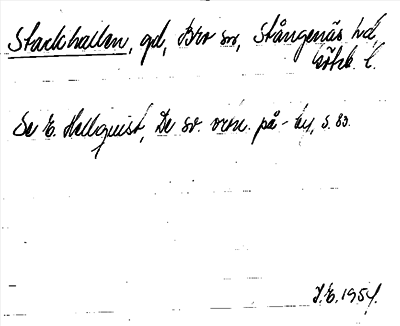 Stackhallen, gd, Bro sn, Stångenäs hd,
Göteb. l.
Se E. Hellquist, De sv. ortn. på -by, s. 83.
J.E. 1954.